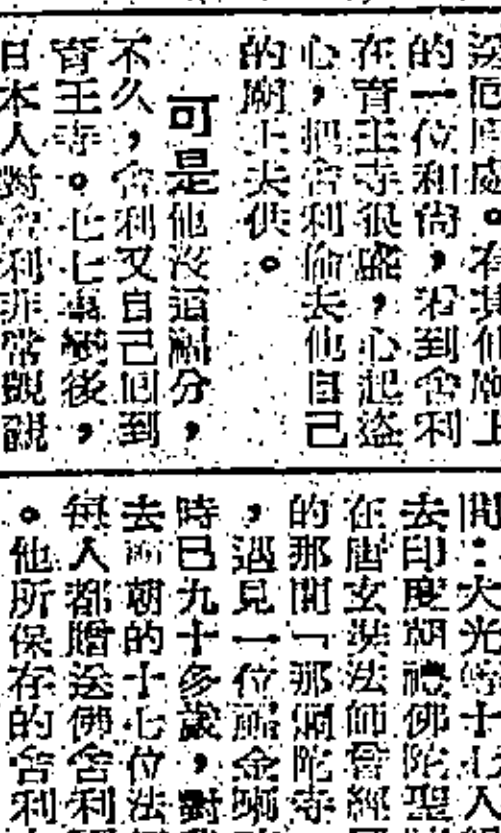 處。有其他廟上
的一位和尚,看到舍利
在育王寺很盛,心起盜
心,把舍利偷去他自己
的廟上去供。
可是他沒這福分,
不久,舍利又自己回到
育王寺。七七事變後,
日本人對舍利非常觀覦
間:大光等十七人
去印度朝禮佛陀聖
在唐玄奘法師曾經
的那間「那爛陀寺
,遇見一位
時已九十多歲,對
去朝的十七位法
每人都贈送佛舍利
。他所保存的舍利